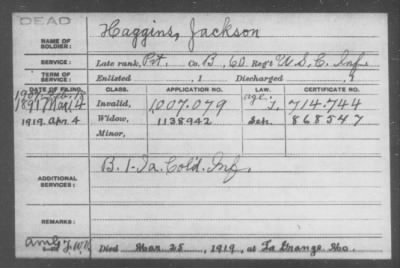 DEAD
NAME OF SOLDIER: Haggins, Jackson
SERVICE: Late rank, Pvt. Co. B, 60 Reg't U.S.C. Inf.
TERM OF SERVICE: Enlisted , 1 Discharged , 1
DATE OF FILING. CLASS. APPLICATION NO. LAW. CERTIFICATE NO.
1907
1891 Mar 4 Invalid, 1,007.079 age. 714.744
1919. apr. 4 Widow, 1138942 868547
Minor,
ADDITIONAL SERVICES: B. 1. Ia. Cold. Inf.
REMARKS:
Died Mar. 25, 1919, at La Grange Mo.